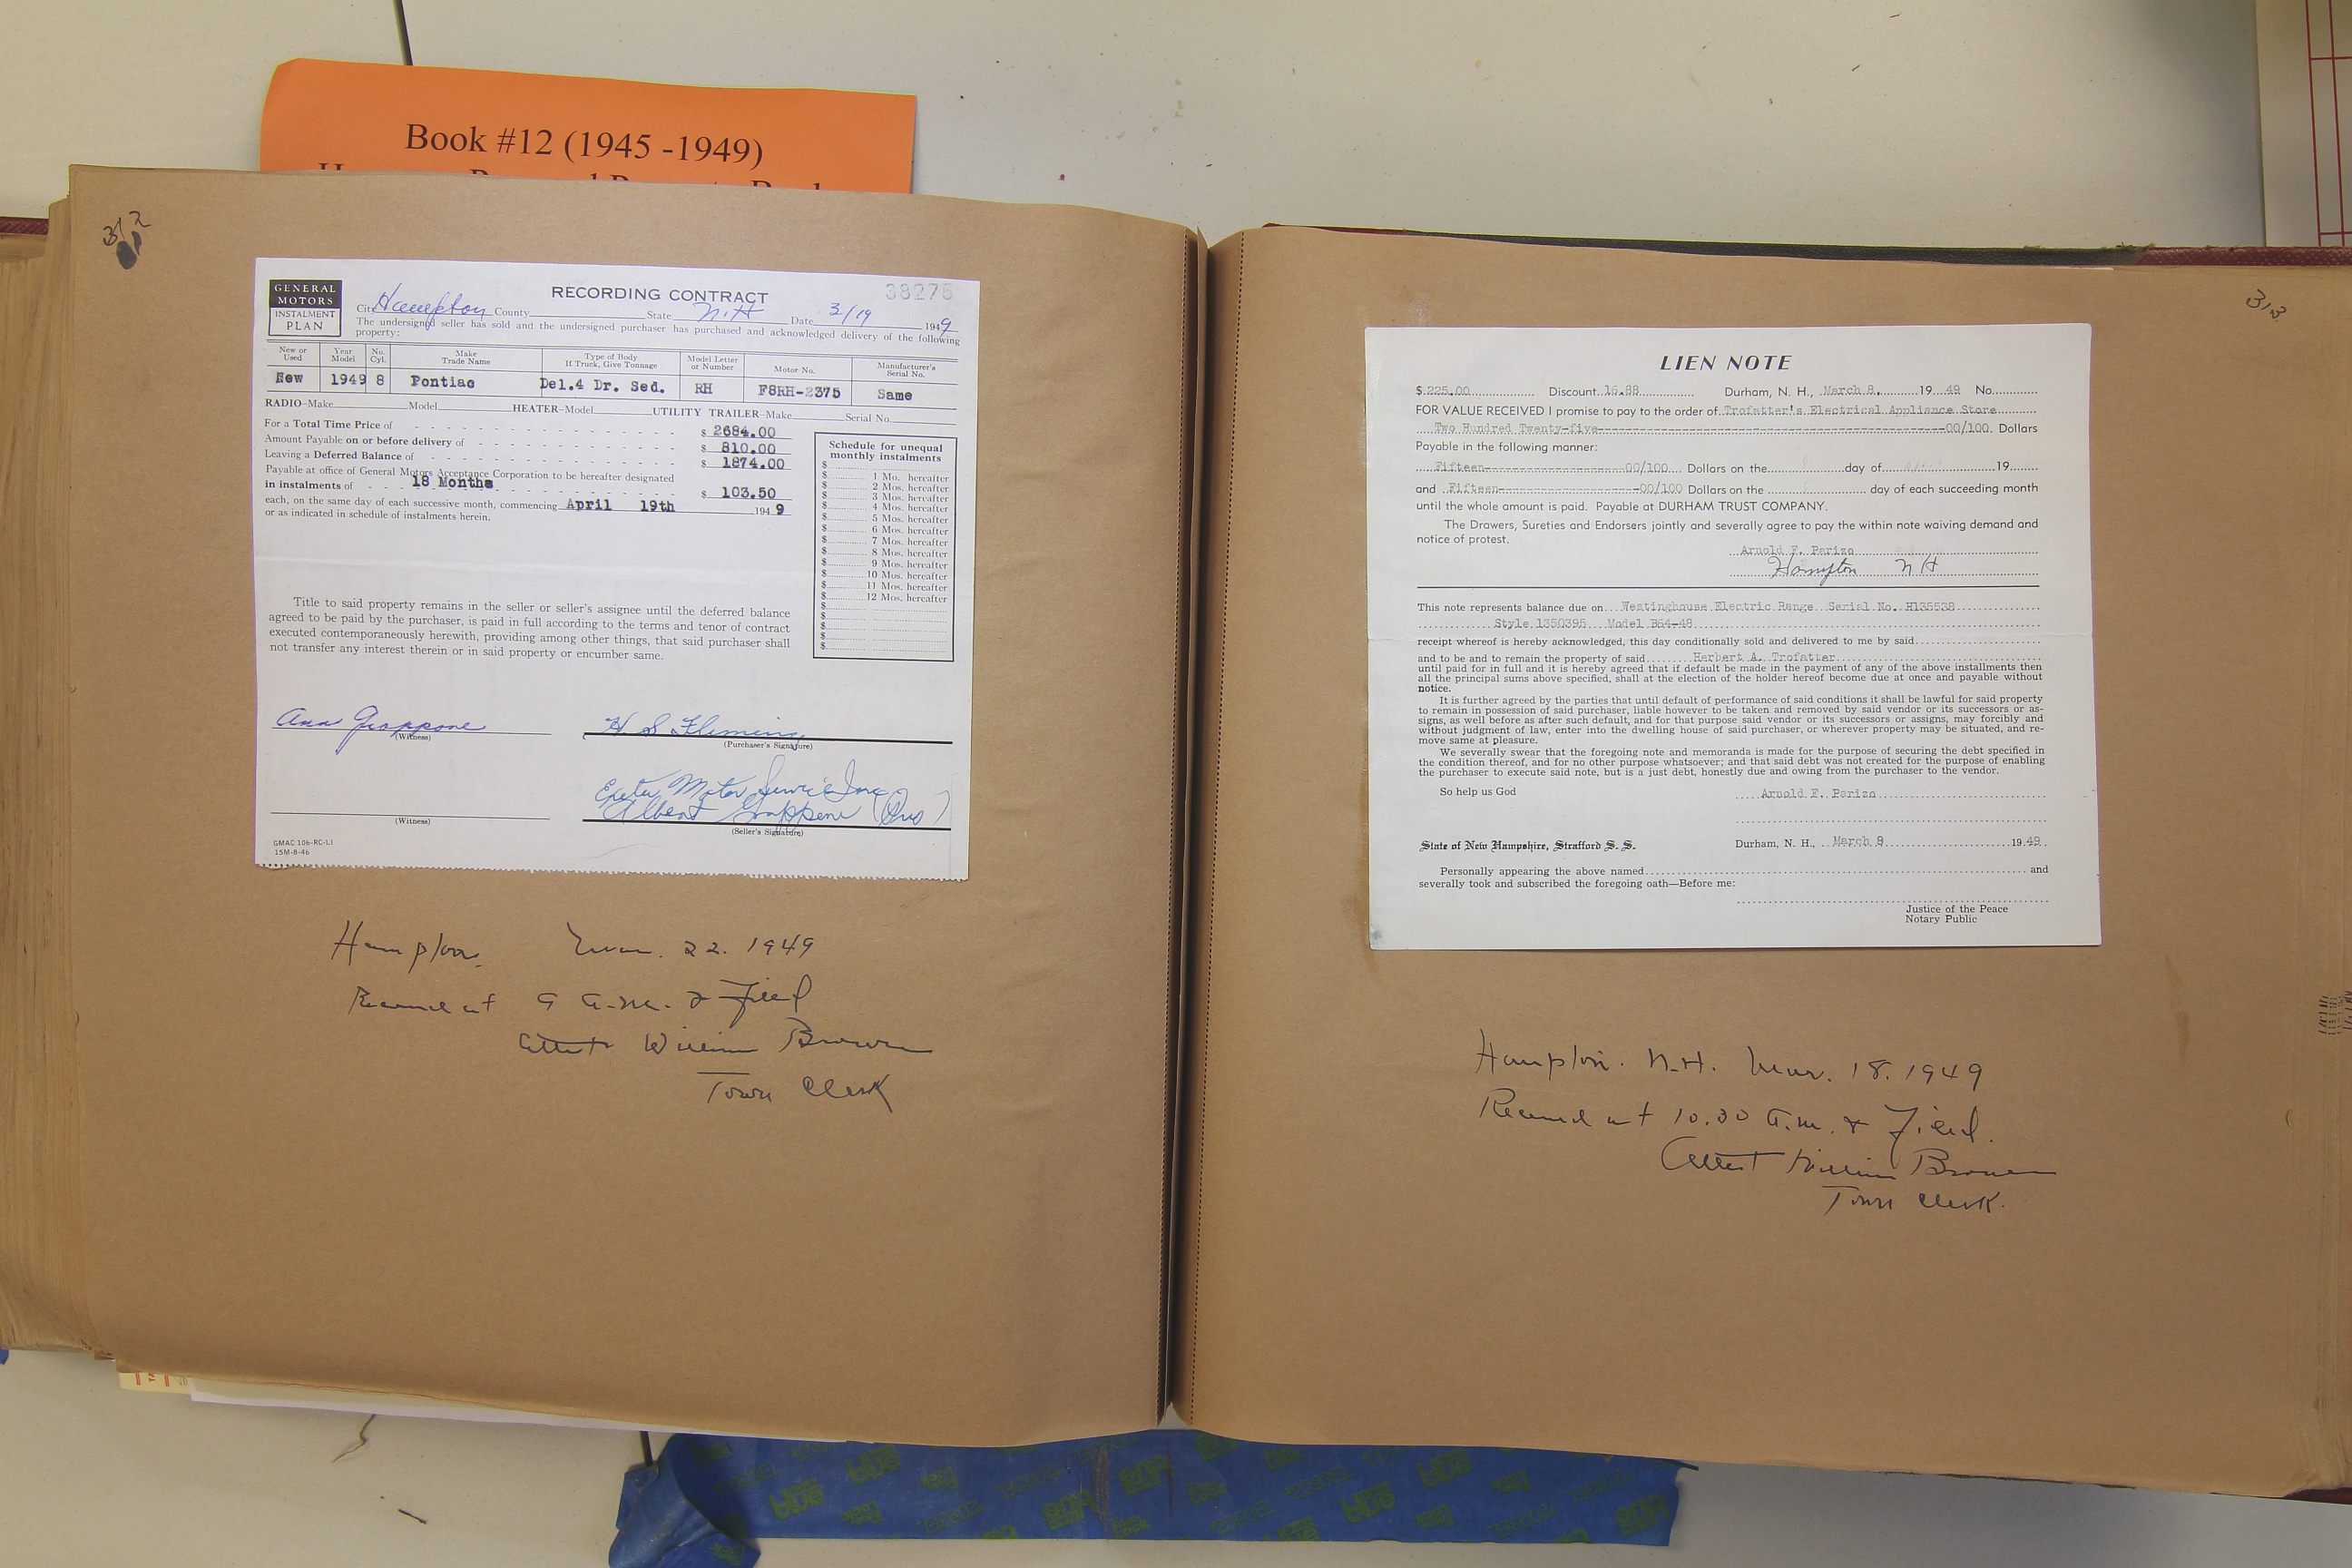 Book #12 (1945 -1949)
312
GENERAL
MOTORS
INSTALMENT
PLAN
RECORDING CONTRACT
38275
City Hampton County State N.H Date 3/19 1949
The undersigned seller has sold and the undersigned purchaser has purchased and acknowledged delivery of the following
property:
New or Used Year Model No. Cyl. Make Trade Name Type of Body If Truck, Give Tonnage Model Letter or Number Motor No. Manufacturer's Serial No.
New 1949 8 Pontiac Del.4 Dr. Sed. RH F8RH-2375 Same
RADIO-Make Model HEATER-Model UTILITY TRAILER-Make Serial No.
For a Total Time Price of $ 2684.00
Amount Payable on or before delivery of $ 810.00
Leaving a Deferred Balance of $ 1874.00
Payable at office of General Motors Acceptance Corporation to be hereafter designated
in instalments of 18 Months $ 103.50
each, on the same day of each successive month, commencing April 19th 1949
or as indicated in schedule of instalments herein.
Schedule for unequal
monthly instalments
$
$ 1 Mo. hereafter
$ 2 Mos. hereafter
$ 3 Mos. hereafter
$ 4 Mos. hereafter
$ 5 Mos. hereafter
$ 6 Mos. hereafter
$ 7 Mos. hereafter
$ 8 Mos. hereafter
$ 9 Mos. hereafter
$ 10 Mos. hereafter
$ 11 Mos. hereafter
$ 12 Mos. hereafter
$
$
$
$
Title to said property remains in the seller or seller's assignee until the deferred balance
agreed to be paid by the purchaser, is paid in full according to the terms and tenor of contract
executed contemporaneously herewith, providing among other things, that said purchaser shall
not transfer any interest therein or in said property or encumber same.
Ann Grappone
(Witness)
H S Fleming
(Purchaser's Signature)
Exeter Motor Service Inc
Albert Grappone
(Witness)
(Seller's Signature)
GMAC 106-RC-L1
15M-8-46
Hampton. Mar. 22. 1949
Received at 9 a.m. & Filed
Attest William Brown
Town Clerk
313
LIEN NOTE
$ 225.00 Discount 16.88 Durham, N. H., March 8, 19 49 No.
FOR VALUE RECEIVED I promise to pay to the order of Trofatter's Electrical Appliance Store
Two Hundred Twenty-five 00/100 Dollars
Payable in the following manner:
Fifteen 00/100 Dollars on the day of 19
and Fifteen 00/100 Dollars on the day of each succeeding month
until the whole amount is paid. Payable at DURHAM TRUST COMPANY.
The Drawers, Sureties and Endorsers jointly and severally agree to pay the within note waiving demand and
notice of protest.
Arnold F. Parizo
Hampton N H
This note represents balance due on Westinghouse Electric Range Serial No. H135538
Style 1350395 Model B64-48
receipt whereof is hereby acknowledged, this day conditionally sold and delivered to me by said
and to be and to remain the property of said Herbert A. Trofatter
until paid for in full and it is hereby agreed that if default be made in the payment of any of the above installments then
all the principal sums above specified, shall at the election of the holder hereof become due at once and payable without
notice.
It is further agreed by the parties that until default of performance of said conditions it shall be lawful for said property
to remain in possession of said purchaser, liable however to be taken and removed by said vendor or its successors or as-
signs, as well before as after such default, and for that purpose said vendor or its successors or assigns, may forcibly and
without judgment of law, enter into the dwelling house of said purchaser, or wherever property may be situated, and re-
move same at pleasure.
We severally swear that the foregoing note and memoranda is made for the purpose of securing the debt specified in
the condition thereof, and for no other purpose whatsoever; and that said debt was not created for the purpose of enabling
the purchaser to execute said note, but is a just debt, honestly due and owing from the purchaser to the vendor.
So help us God Arnold F. Parizo
State of New Hampshire, Strafford S. S. Durham, N. H., March 8 19 49
Personally appearing the above named and
severally took and subscribed the foregoing oath—Before me:
Justice of the Peace
Notary Public
Hampton. N.H. Mar. 18. 1949
Received at 10.30 a.m. & Filed.
Attest William Brown
Town Clerk.